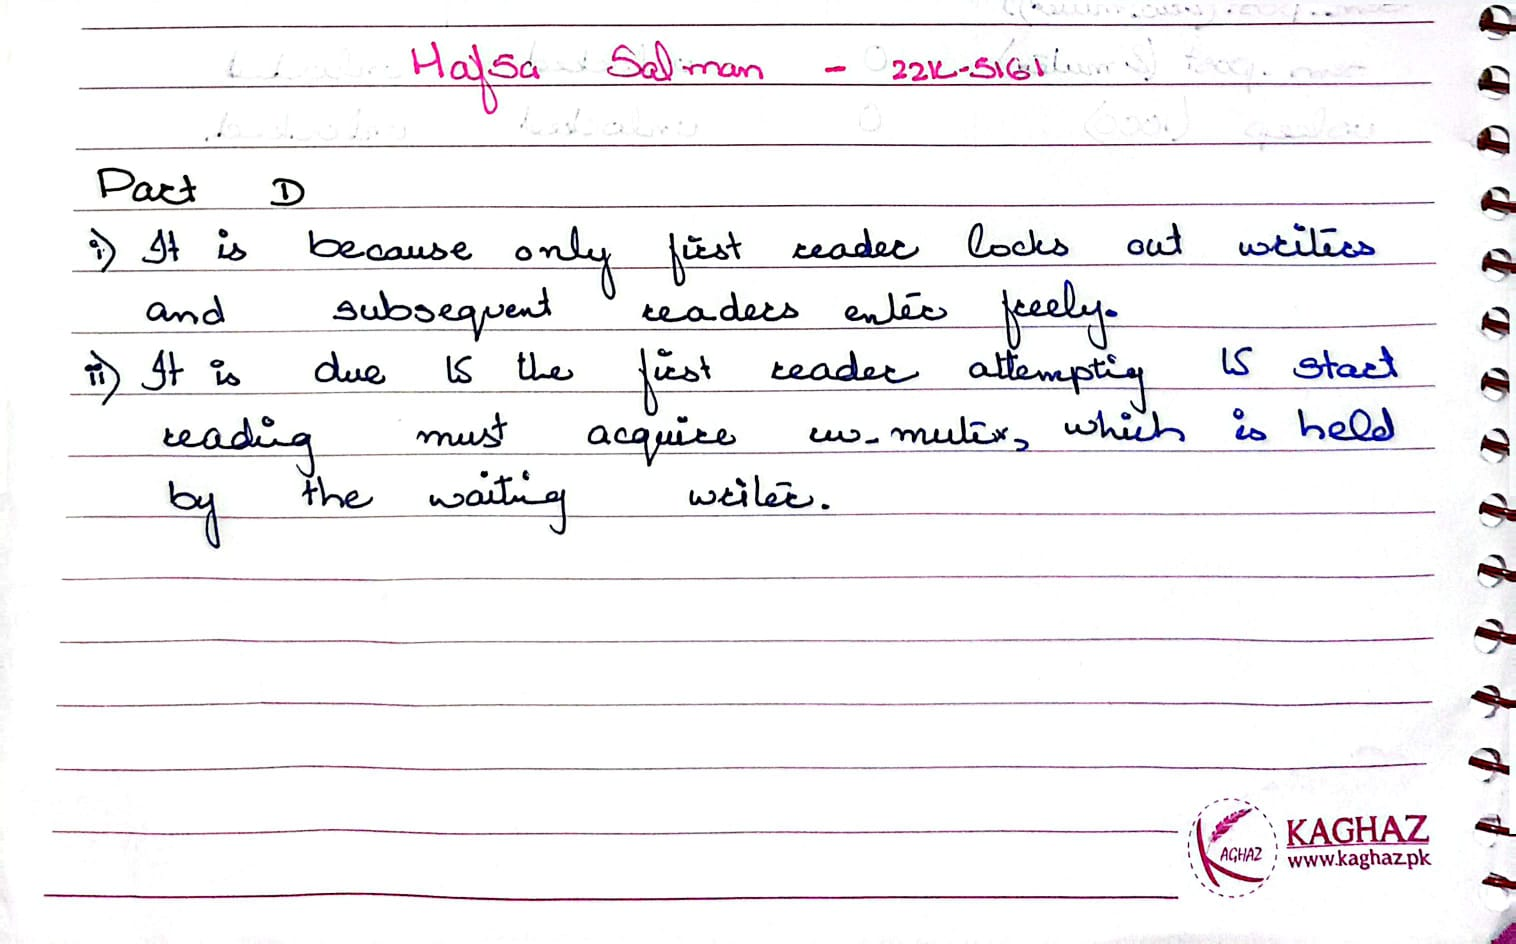 Hafsa Salman - 22K-5161
Part D
i) It is because only first reader locks out writers
and subsequent readers enter freely.
ii) It is due to the first reader attempting to start
reading must acquire rw-mutex, which is held
by the waiting writer.
KAGHAZ
AGHAZ
www.kaghaz.pk